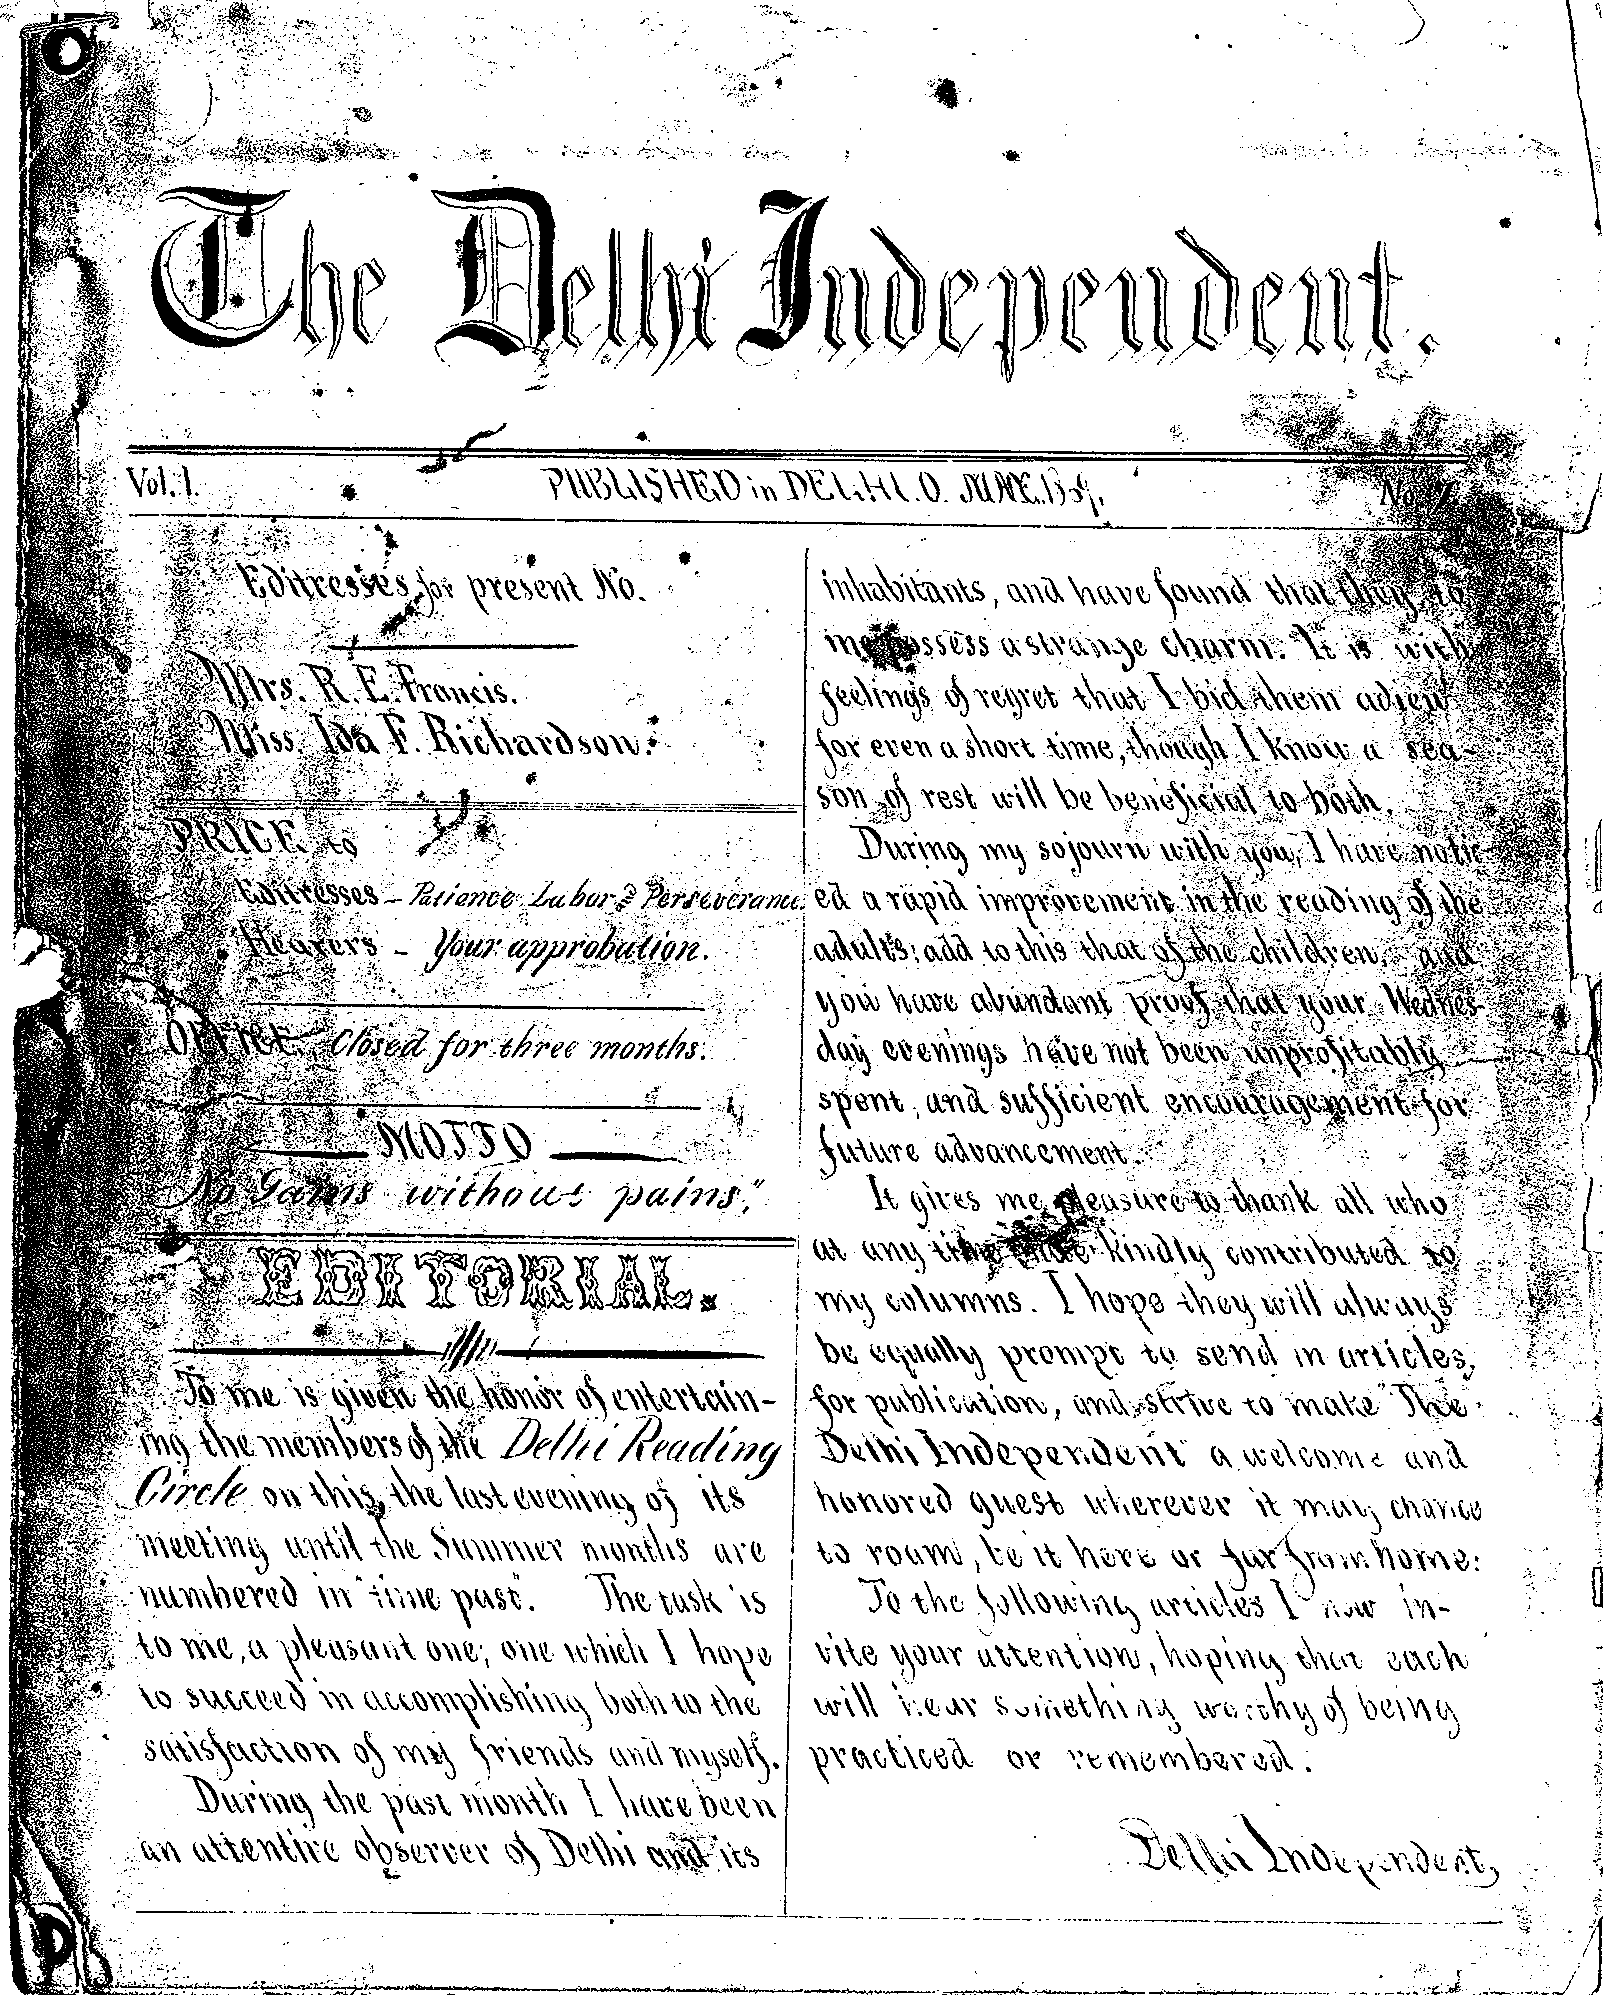 The Delhi Independent.
Vol. 1.
PUBLISHED in DELHI. O. JUNE.
No.
Editresses for present No.
Mrs. R. E. Francis.
Miss. Ida F. Richardson.
PRICE to
Editresses – Patience Labor & Perseverance.
Hearers – Your approbation.
OFFICE. Closed for three months.
MOTTO
"No Gains without pains."
EDITORIAL.
To me is given the honor of entertain-
ing the members of the Delhi Reading
Circle on this, the last evening of its
meeting until the Summer months are
numbered in "time past". The task is
to me, a pleasant one; one which I hope
to succeed in accomplishing both to the
satisfaction of my friends and myself.
During the past month I have been
an attentive observer of Delhi and its
inhabitants, and have found that they to
me possess a strange charm. It is with
feelings of regret that I bid them adieu
for even a short time, though I know a sea-
son of rest will be beneficial to both.
During my sojourn with you, I have notic-
ed a rapid improvement in the reading of the
adults; add to this that of the children, and
you have abundant proof that your Wednes-
day evenings have not been unprofitably
spent, and sufficient encouragement for
future advancement.
It gives me pleasure to thank all who
at any time have kindly contributed to
my columns. I hope they will always
be equally prompt to send in articles,
for publication, and strive to make "The
Delhi Independent" a welcome and
honored guest wherever it may chance
to roam, be it here or far from home.
To the following articles I now in-
vite your attention, hoping that each
will hear something worthy of being
practiced or remembered.
Delhi Independent,